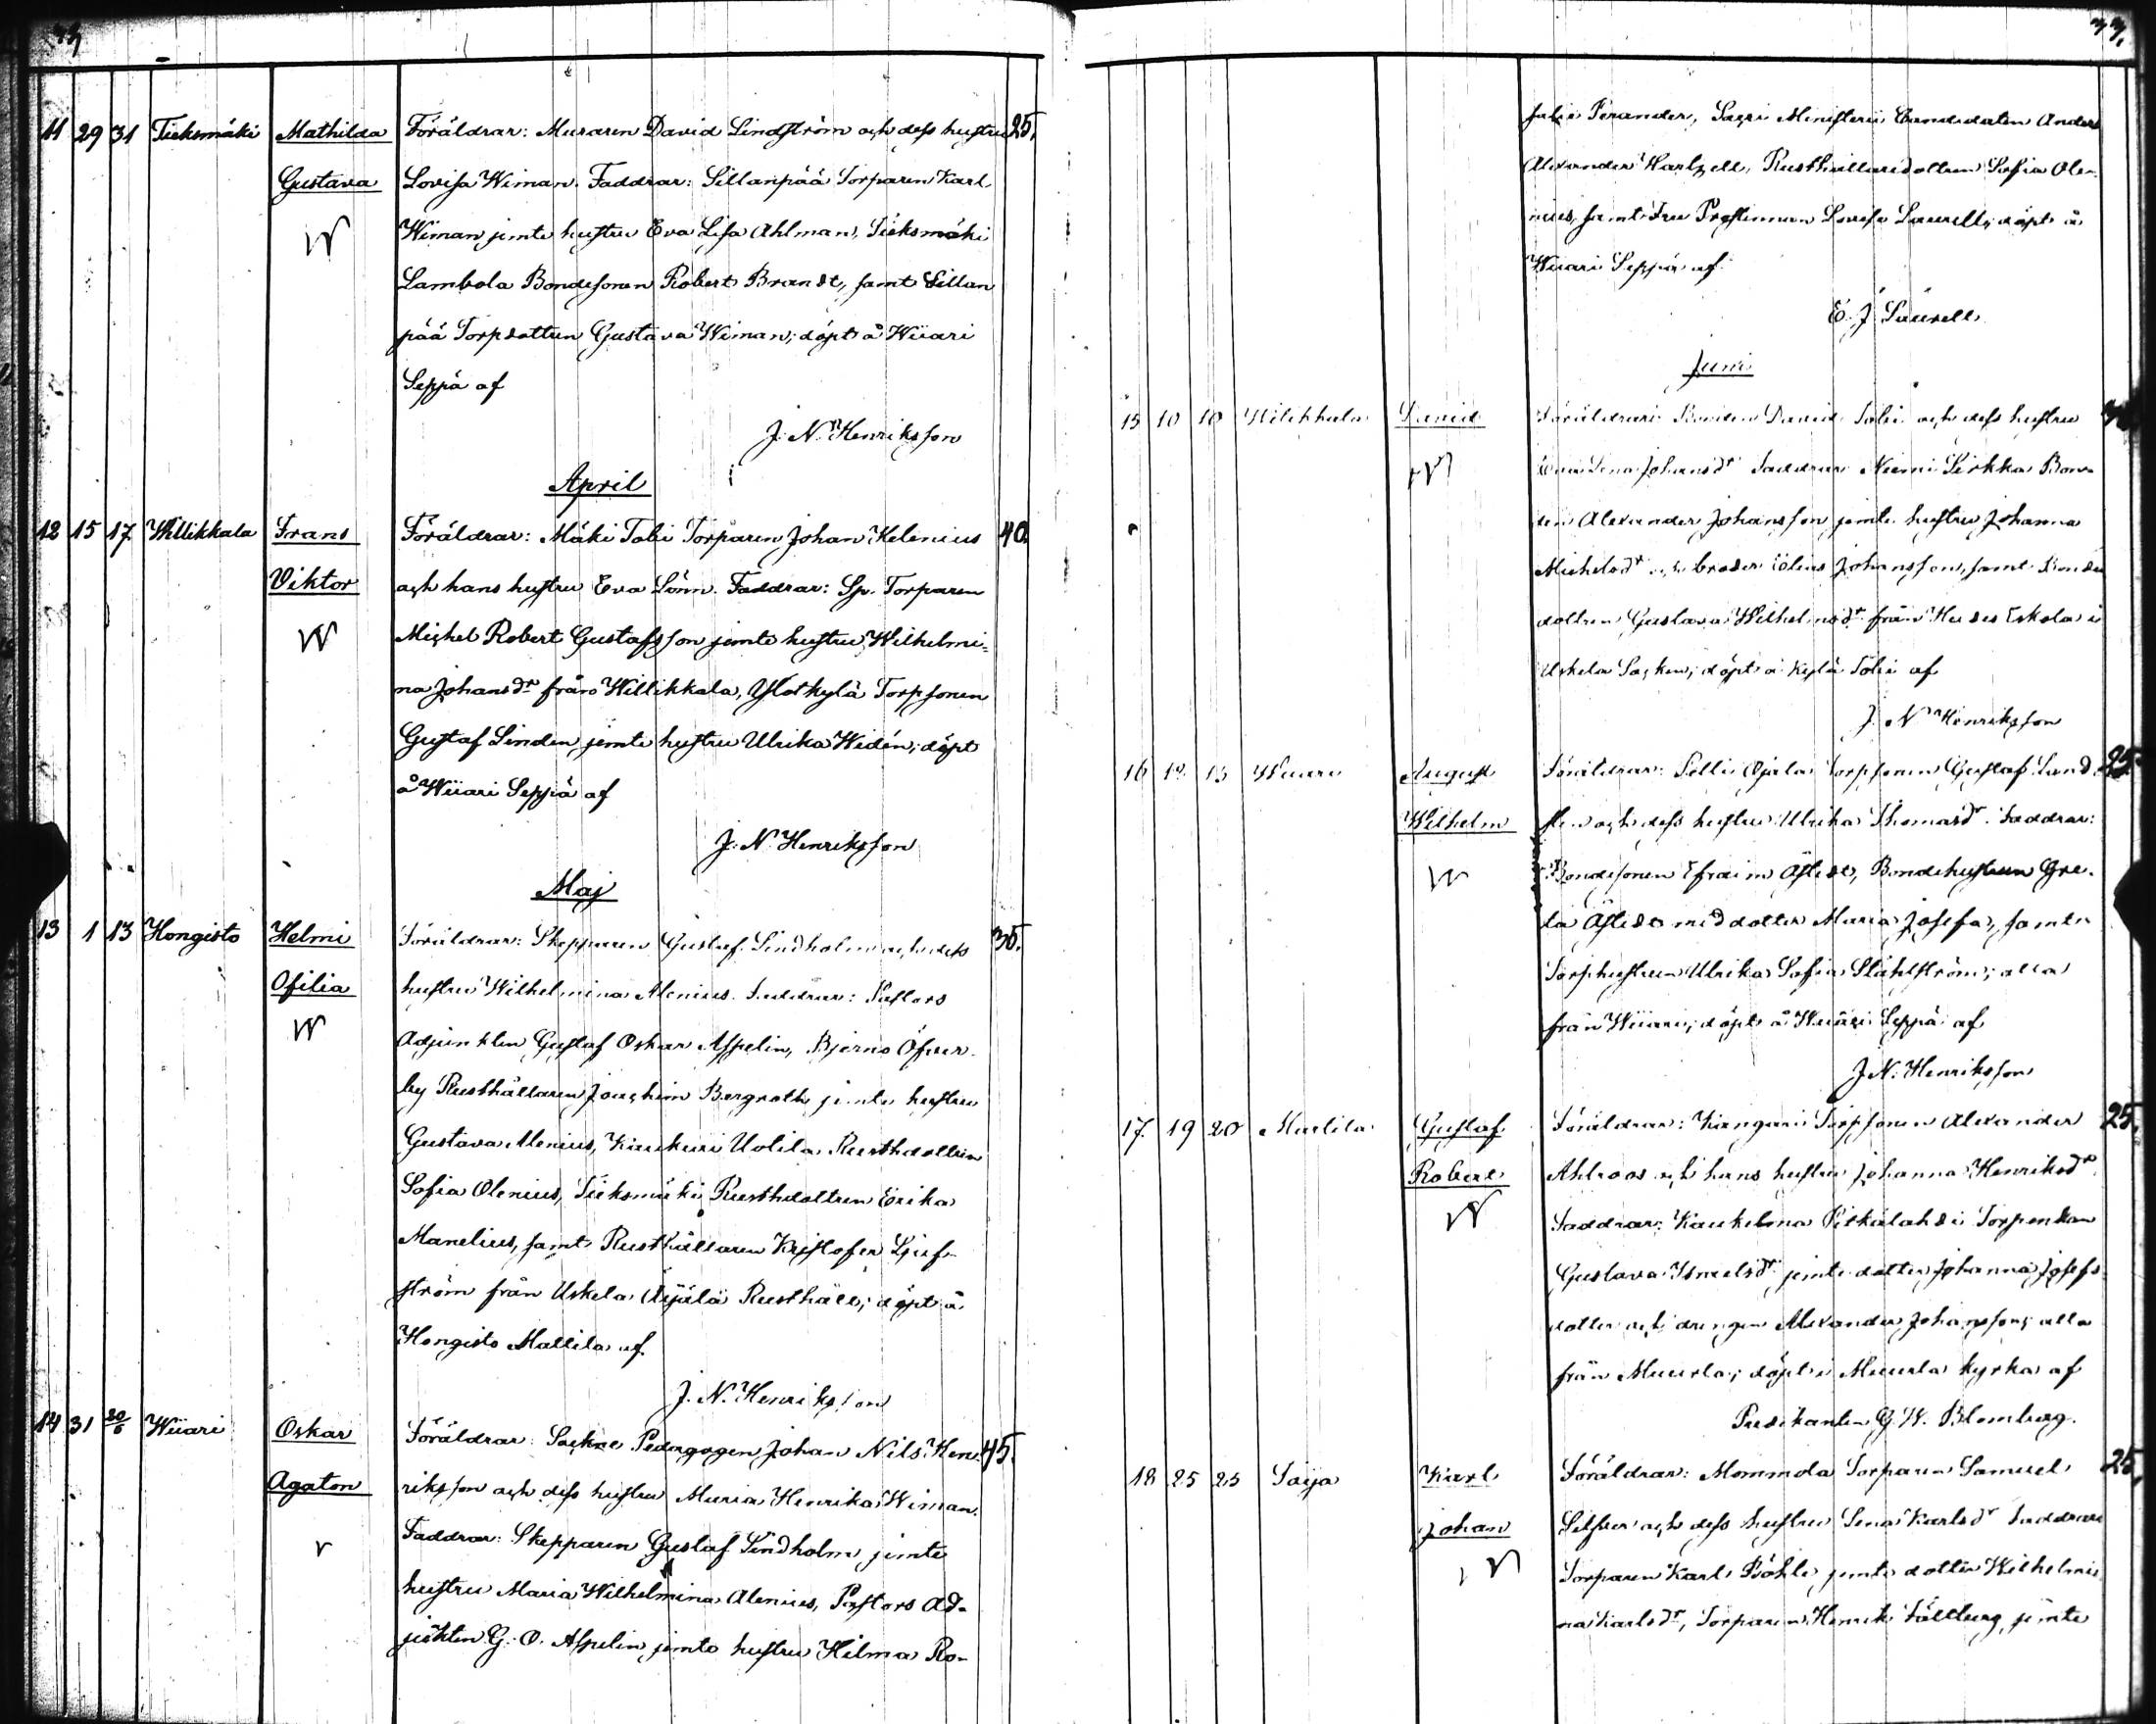 11 29 31 Tieksmäki Mathilda Föräldrar: Muraren David Lindström och dess hustru 25.
Gustava Lovisa Wiman. Faddrar: Sillanpää Torparen Karl
Wiman jemte hustru Eva Lisa Ahlman, Tieksmäki
Lambola Bondesonen Robert Brandt, samt Sillan
pää Torpdottren Gustava Wiman; döpt å Wiiari
Seppä af
J. N. Henriksson
April
12 15 17 Willikkala Frans Föräldrar: Mäki Tobi Torparen Johan Helenius 40.
Viktor och hans hustru Eva Lönn. Faddrar: Sp. Torparen
Michel Robert Gustafsson jemte hustru Wilhelmi=
na Johansdr från Willikkala, Ylöskylä Torpsonen
Gustaf Linden jemte hustru Ulrika Widén; döpt
å Wiiari Seppä af
J. N. Henriksson
Maj
13 1 13 Hongisto Helmi Föräldrar: Skepparen Gustaf Lindholm och dess 35.
Ofilia hustru Wilhelmina Alenius. Faddrar: Pastors
Adjunkten Gustaf Oskar Aspelin, Bjerno Öfver-
by Rusthållaren Joachim Bergroth jemte hustru
Gustava Alenius, Kaukuri Uotila Rusthdottren
Sofia Olenius, Tieksmäki Rusthdottren Erika
Manelius, samt Rusthållaren Kristofer Ljuf-
ström från Uskela Äijälä Rusthåll; döpt å
Hongisto Mattila af
J. N. Henriksson
14 31 20/6 Wiiari Oskar Föräldrar: Sockne Pedagogen Johan Nils Hen- 45.
Agaton riksson och dess hustru Maria Henrika Wiman.
Faddrar: Skepparen Gustaf Lindholm jemte
hustru Maria Wilhelmina Alenius, Pastors Ad-
jukten G. O. Aspelin jemte hustru Hilma Ro-
33.
Perander, Sacri Ministerii Candidaten Anders
Alexander Hartzell, Rusthållaredottren Sofia Ole-
nius, samt Fru Prostinnan Lovisa Laurell; döpt å
Wiiari Seppä af
E. J. Laurell
Juni
15 10 10 Willikkala David Föräldrar: Bonden David Tobi och dess hustru
Eva Lena Johansdr Faddrar: Niemi Sirkka Bon-
den Alexander Johansson jemte hustru Johanna
Michelsdr och broder Elias Johansson, samt Bonde
dottren Gustava Wilhelmsdr från Eskola i
Uskela Socken; döpt å Kylä Tobi af
J. N. Henriksson
16 12 13 Wiiari August Föräldrar: Pelli Ojala Torpsonen Gustaf Lind- 25.
Wilhelm sten och dess hustru Ulrika Thomasdr. Faddrar:
Bondesonen Efraim Åstedt, Bondehustrun Gre-
ta Åstedt med dotter Maria Josefa, samt
Torphustrun Ulrika Sofia Ståhlström; alla
från Wiiari; döpt å Wiiari Seppä af
J. N. Henriksson
17. 19 20 Marttila Gustaf Föräldrar: Kangari Torpsonen Alexander 25.
Robert Ahlroos och hans hustru Johanna Henriksdr.
Faddrar: Kaukelma Pitkälahdi Torpenkan
Gustava Israelsdr jemte dotter Johanna Josefs
dotter och drengen Alexander Johansson; alla
från Muurla; döpt i Muurla kyrka af
Predikanten G. W. Blomberg.
18 25 25 Saija Karl Föräldrar: Mommola Torparen Samuel 25.
Johan Silfver och dess hustru Lena Karlsdr Faddrar:
Torparen Karl Böhle jemte dotter Wilhelmi
na Karlsdr, Torparen Henrik Fältberg jemte